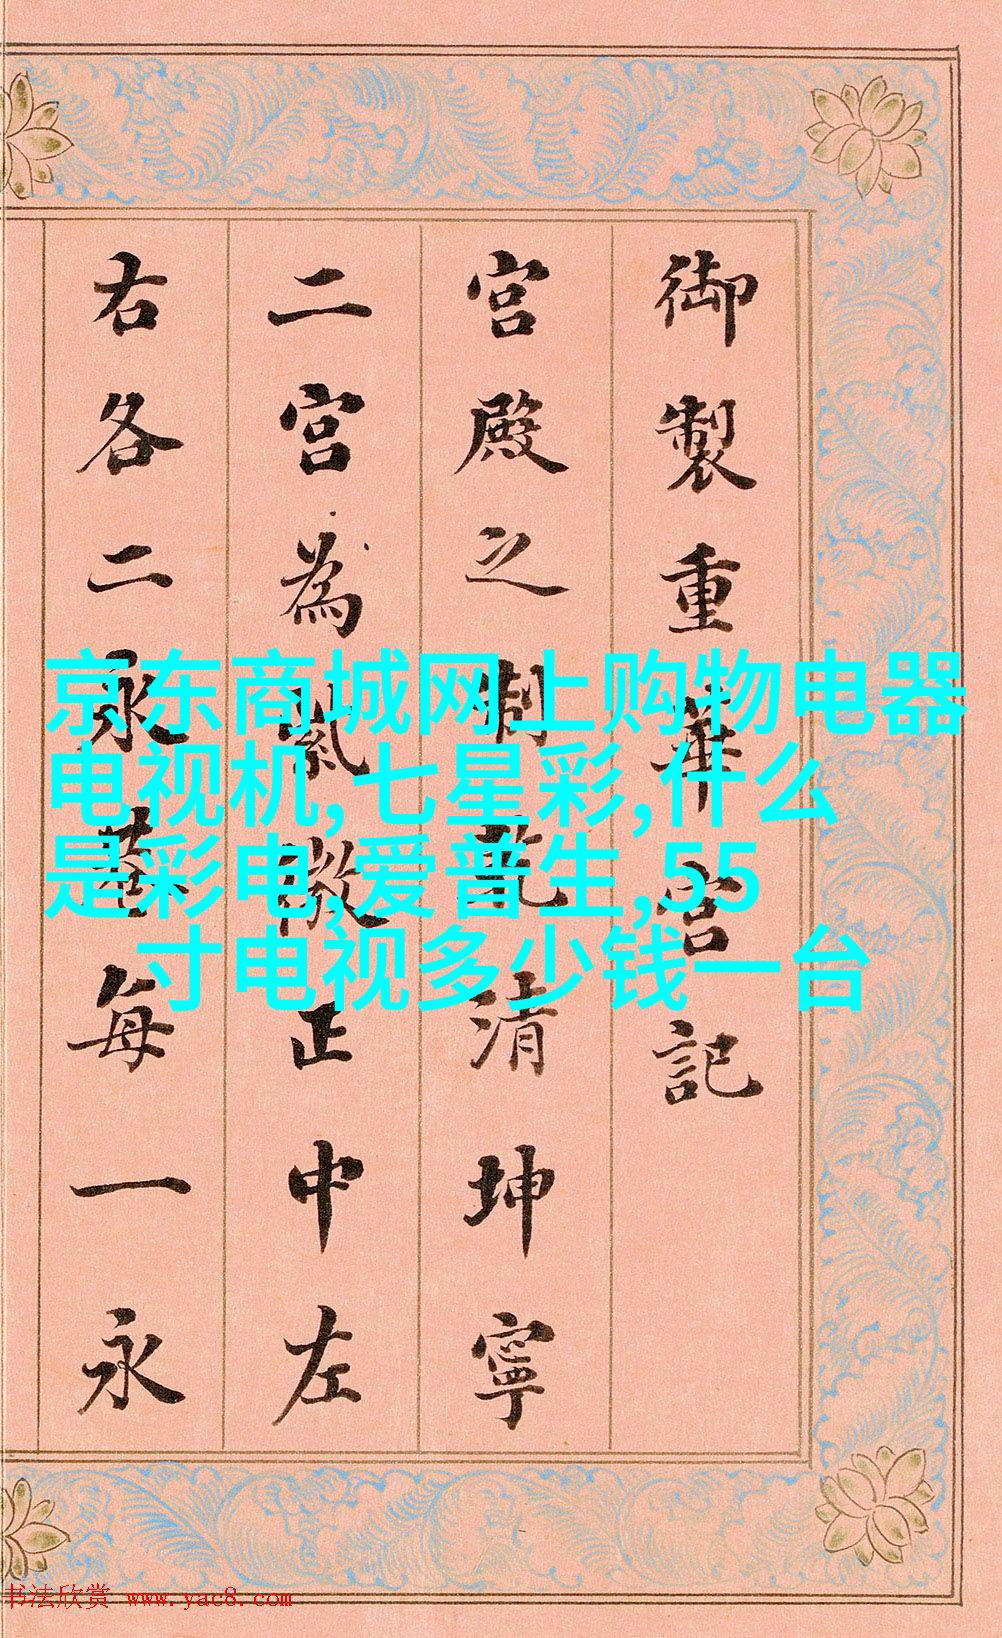 御製重華宮記
宮殿之制乾清坤寧
二宮為紫微正中左
右各二永巷每一永
京东商城网上购物电器
电视机,七星彩,什么
是彩电,爱普生,55
寸电视多少钱一台
书法欣赏 www.yac8.com